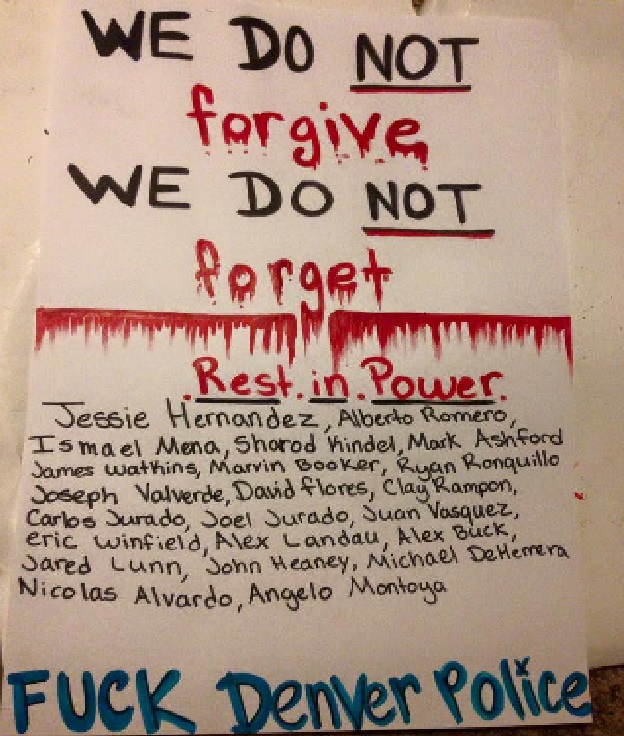 WE DO NOT
forgive
WE DO NOT
forget
.Rest.in.Power.
Jessie Hernandez, Alberto Romero,
Ismael Mena, Sharod Kindel, Mark Ashford
James Watkins, Marvin Booker, Ryan Ronquillo
Joseph Valverde, David flores, Clay Rampon,
Carlos Jurado, Joel Jurado, Juan Vasquez,
eric Winfield, Alex Landau, Alex Buck,
Jared Lunn, John Heaney, Michael DeHerrera
Nicolas Alvardo, Angelo Montoya
FUCK Denver Police